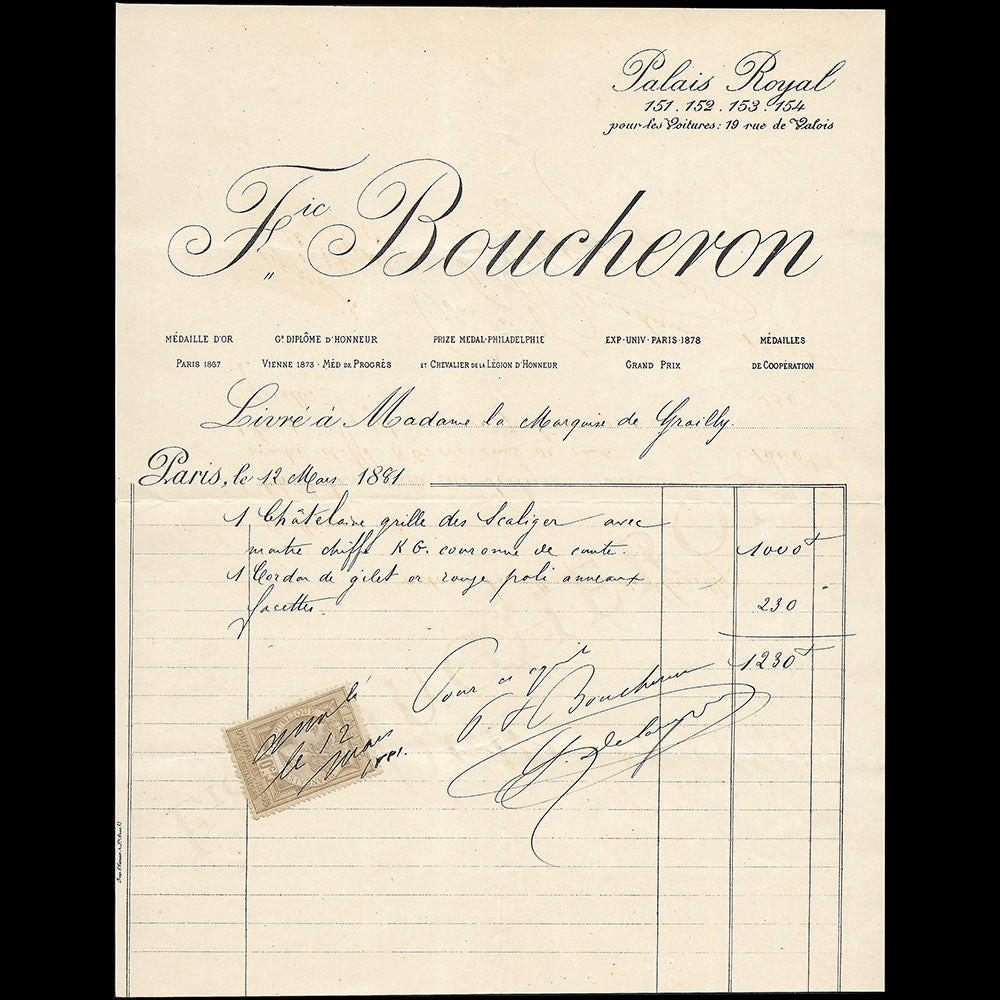 Palais Royal
151 . 152 . 153 . 154
pour les Voitures : 19 rue de Valois
Fic Boucheron
MÉDAILLE D'OR
PARIS 1867
Gd DIPLÔME D'HONNEUR
VIENNE 1873 - MÉD DE PROGRÈS
PRIZE MEDAL-PHILADELPHIE
ET CHEVALIER DE LA LÉGION D'HONNEUR
EXP-UNIV-PARIS-1878
GRAND PRIX
MÉDAILLES
DE COOPÉRATION
Livré à Madame la Marquise de Grailly.
Paris, le 12 Mars 1881
1 Châtelaine grille des Scaliger avec
montre chiffe K G. couronne de comte. 1000
1 Cordon de gilet or rouge poli anneaux
facettes. 230
1230
Pour acquit
P. F Boucheron
annulé
le 12
mars
1881.